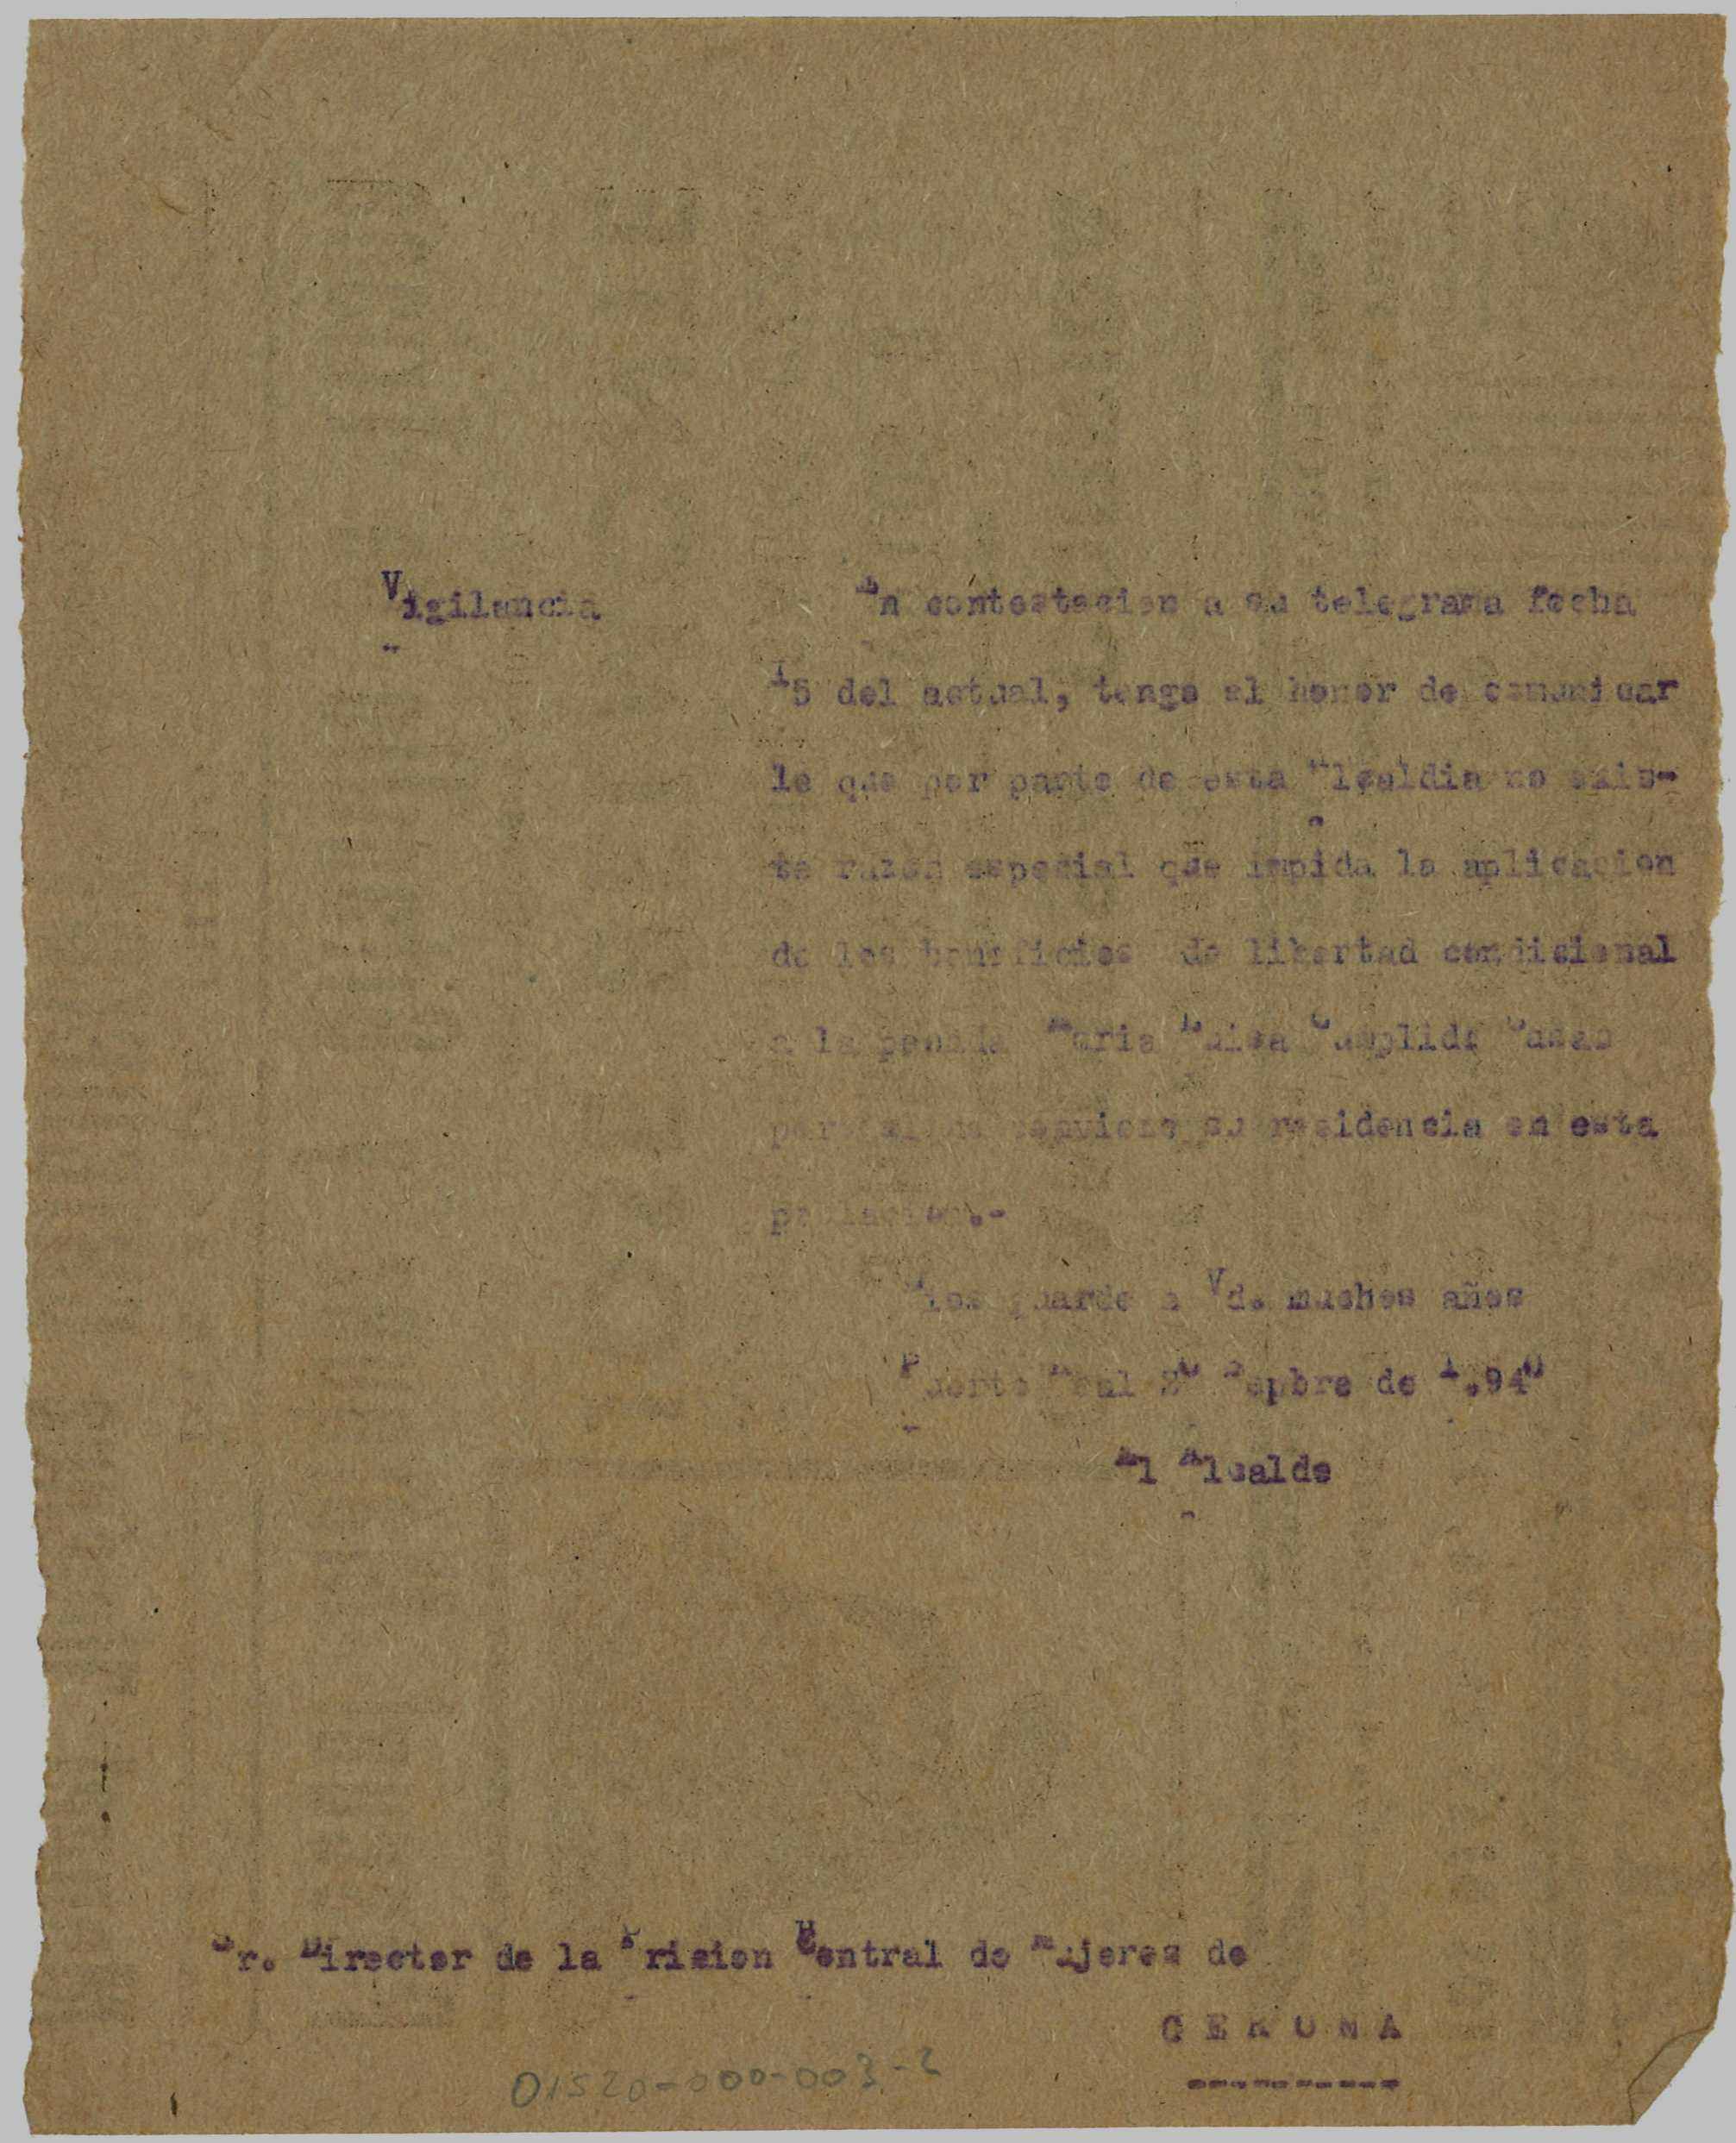 Vigilancia
En contestacion a su telegrama fecha
15 del actual, tengo el honor de comunicar
le que por parte de esta Alcaldia no exis-
te razon especial que impida la aplicacion
de los beneficios de libertad condicional
a la penada Maria Luisa Cumplido Casas
su residencia en esta
poblacion.-
Dios guarde a Vd. muchos años
Puerto Real 20 Sepbre de 1.940
El Alcalde
Sr. Director de la Prision Central de Mujeres de
GERONA
----------
01520-000-003-2